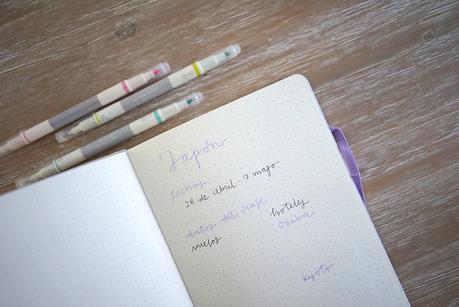 Japón
fechas
28 de abril - 7 mayo
datos del viaje
vuelos
hoteles
Osaka
Kyoto